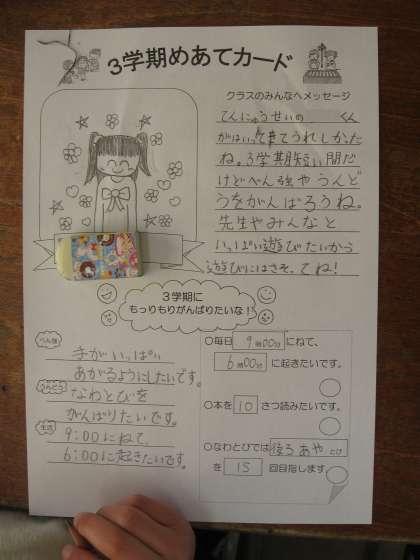 3学期めあてカード
クラスのみんなへメッセージ
てんにゅうせいの くん
がはいってきてうれしかった
ね。3学期短い間だ
けどべん強やうんど
うをがんばろうね。
先生やみんなと
いっぱい遊びたいから
遊びにはさそってね!
3学期に
もっりもりがんばりたいな!
べん強
手がいっぱい
あがるようにしたいです。
うんどう
なわとびを
がんばりたいです。
生活
9:00にねて、
6:00に起きたいです。
○毎日 9時00分にねて、
6時00分に起きたいです。
○本を 10 さつ読みたいです。
○なわとびでは後ろあやとび
を 15 回目指します